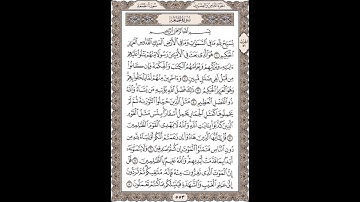 سُورَةُ الجُمُعَةِ
بِسْمِ اللَّهِ الرَّحْمَٰنِ الرَّحِيمِ
يُسَبِّحُ لِلَّهِ مَا فِي السَّمَٰوَٰتِ وَمَا فِي الْأَرْضِ الْمَلِكِ الْقُدُّوسِ الْعَزِيزِ
الْحَكِيمِ ١ هُوَ الَّذِي بَعَثَ فِي الْأُمِّيِّينَ رَسُولًا مِّنْهُمْ يَتْلُوا عَلَيْهِمْ
ءَايَٰتِهِ وَيُزَكِّيهِمْ وَيُعَلِّمُهُمُ الْكِتَٰبَ وَالْحِكْمَةَ وَإِن كَانُوا
مِن قَبْلُ لَفِي ضَلَٰلٍ مُّبِينٍ ٢ وَءَاخَرِينَ مِنْهُمْ لَمَّا يَلْحَقُوا بِهِمْ
وَهُوَ الْعَزِيزُ الْحَكِيمُ ٣ ذَٰلِكَ فَضْلُ اللَّهِ يُؤْتِيهِ مَن يَشَاءُ وَاللَّهُ
ذُو الْفَضْلِ الْعَظِيمِ ٤ مَثَلُ الَّذِينَ حُمِّلُوا التَّوْرَىٰةَ ثُمَّ لَمْ
يَحْمِلُوهَا كَمَثَلِ الْحِمَارِ يَحْمِلُ أَسْفَارًا بِئْسَ مَثَلُ الْقَوْمِ
الَّذِينَ كَذَّبُوا بِـَٔايَٰتِ اللَّهِ وَاللَّهُ لَا يَهْدِي الْقَوْمَ الظَّٰلِمِينَ ٥
قُلْ يَٰأَيُّهَا الَّذِينَ هَادُوا إِن زَعَمْتُمْ أَنَّكُمْ أَوْلِيَاءُ لِلَّهِ مِن
دُونِ النَّاسِ فَتَمَنَّوُا الْمَوْتَ إِن كُنتُمْ صَٰدِقِينَ ٦ وَلَا يَتَمَنَّوْنَهُ
أَبَدًا بِمَا قَدَّمَتْ أَيْدِيهِمْ وَاللَّهُ عَلِيمٌ بِالظَّٰلِمِينَ ٧ قُلْ إِنَّ
الْمَوْتَ الَّذِي تَفِرُّونَ مِنْهُ فَإِنَّهُ مُلَٰقِيكُمْ ثُمَّ تُرَدُّونَ
إِلَىٰ عَٰلِمِ الْغَيْبِ وَالشَّهَٰدَةِ فَيُنَبِّئُكُم بِمَا كُنتُمْ تَعْمَلُونَ ٨
٥٥٣